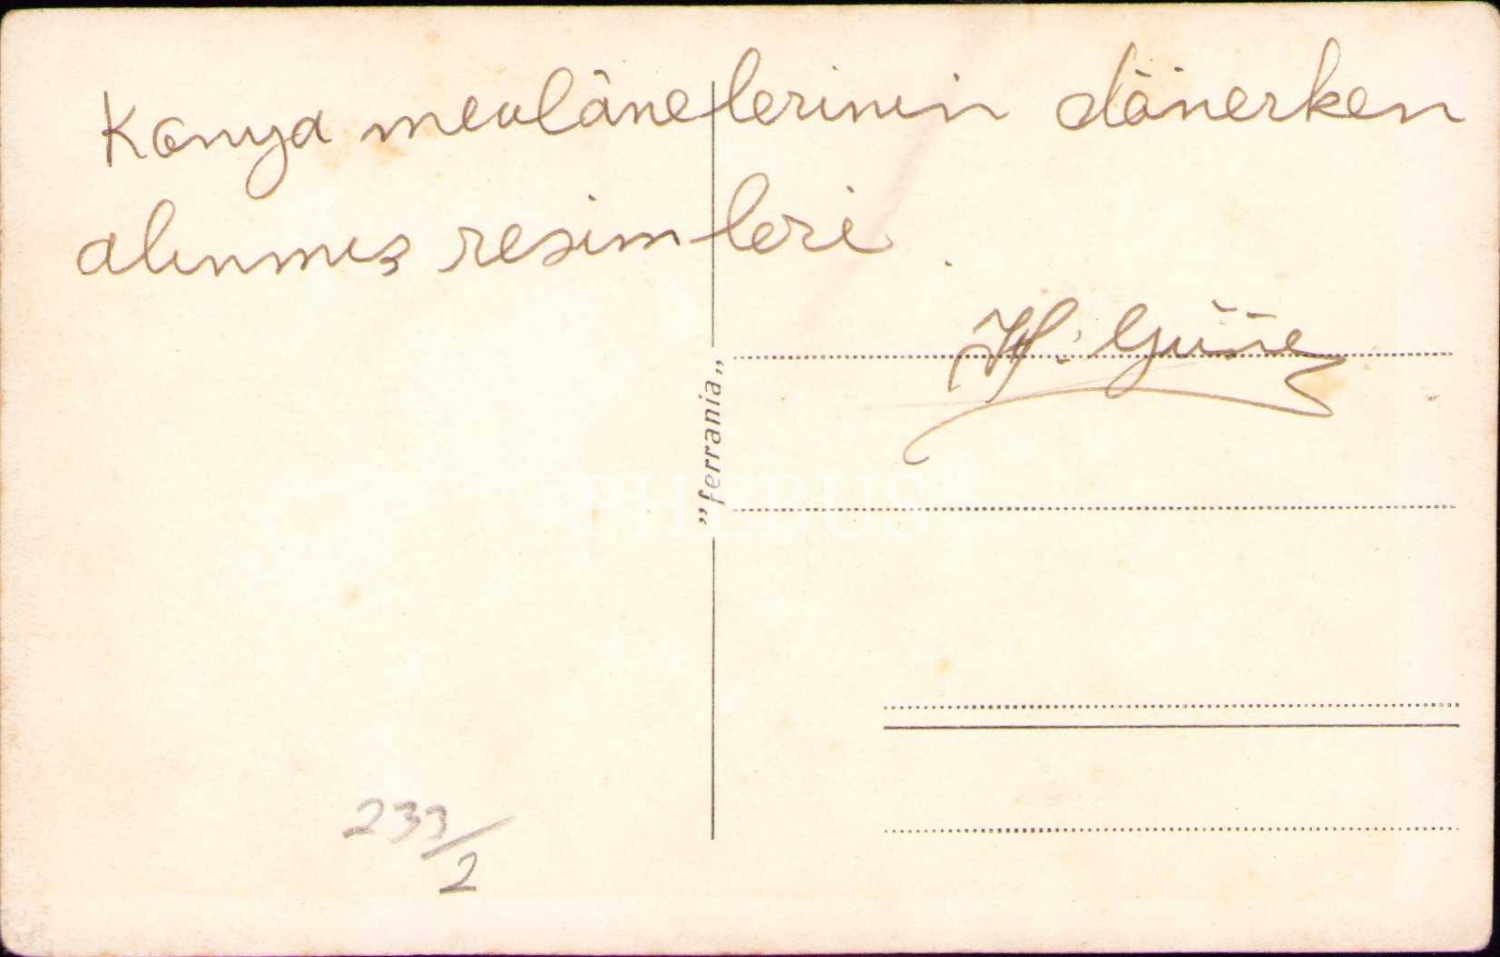 Konya mevlânelerinin dönerken
alınmış resimleri.
H.
"ferrania"
PHEBUS
233/2